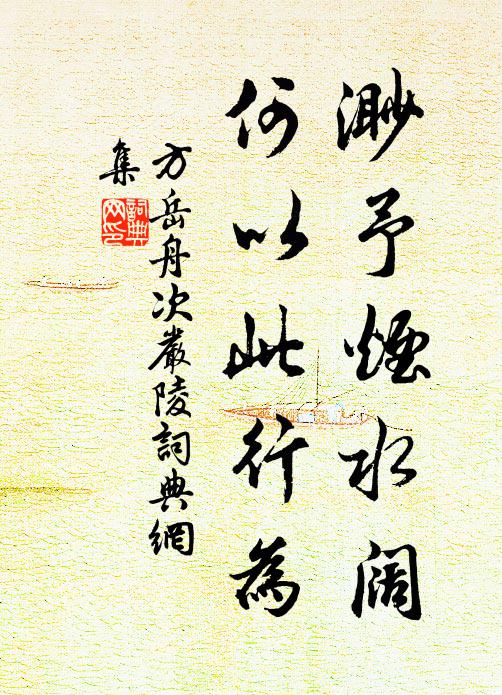 渺予煙水闊
何以此行為
方岳舟次嚴陵詞典網
集
詞典
网印